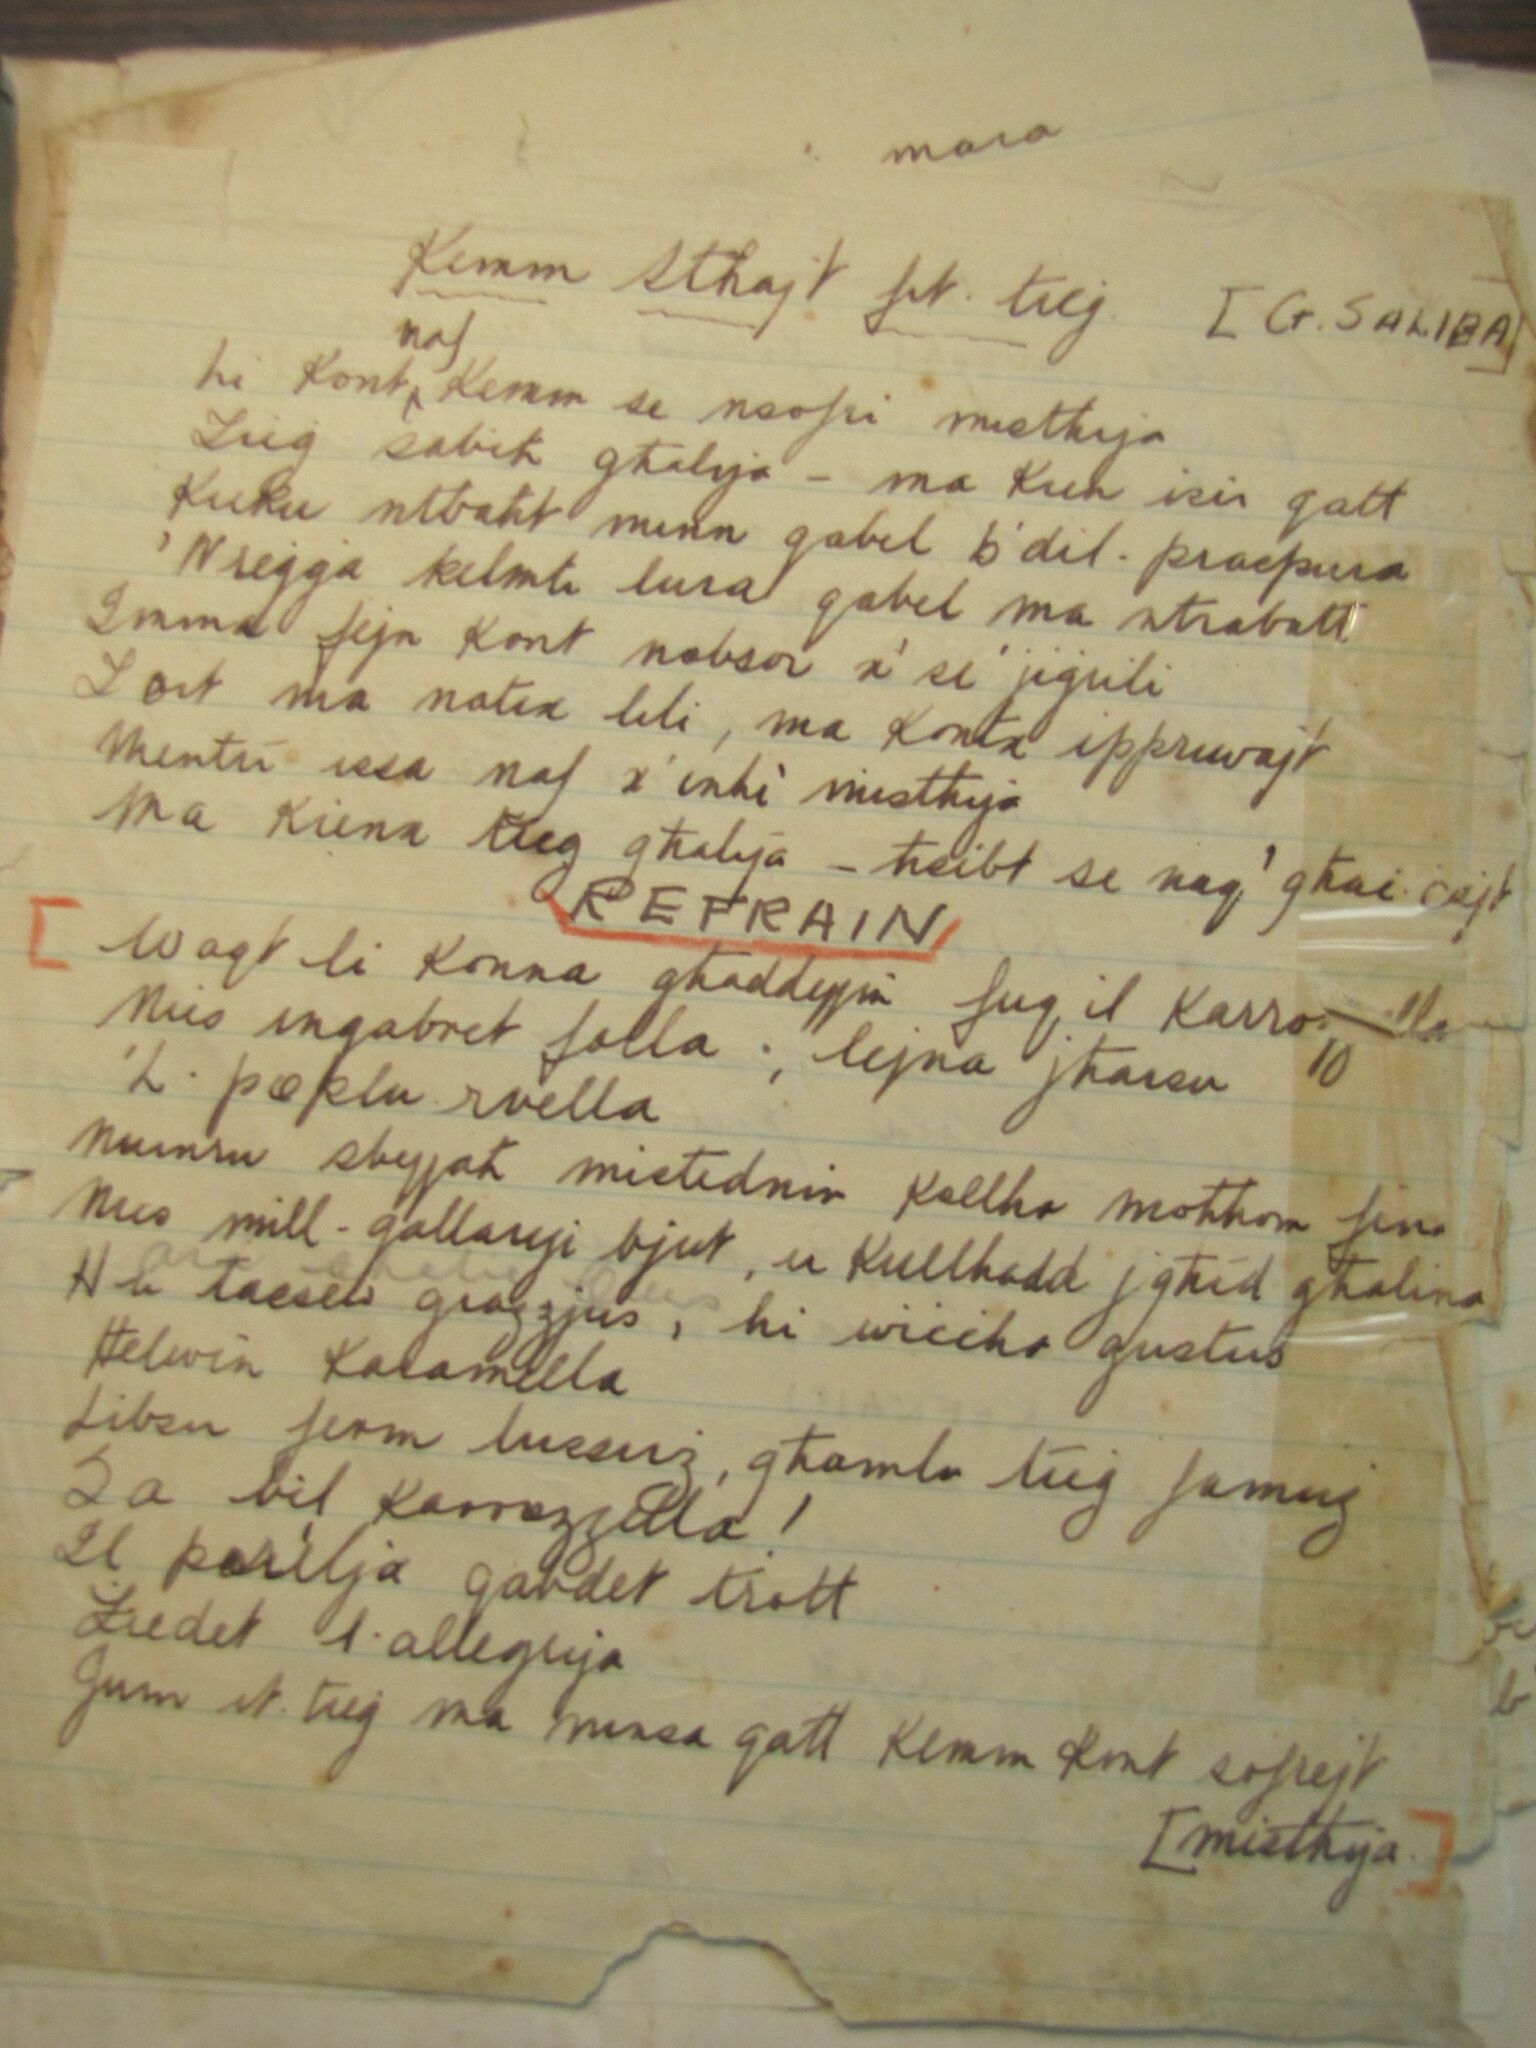 mara
Kemm Stħajt fit. tieġ. [G. SALIBA]
naf
Li Kont Kemm se nsofri mistħija
Żieġ sabiħ għalija - ma Kien isir qatt
Kieku ntbaħt minn qabel b'dil. praspura
'Nreġġa kelmti lura qabel ma ntrabatt
Imma fejn Kont nobsor x' se' jiġrili
Lort ma natix lili, ma Kontx ippruvajt
Mentri issa naf x'inhi mistħija
Ma Kienx tieġ għalija - ħsibt se naq' għai.
REFRAIN
[ Waqt li Konna għaddejjin fuq il Karro
Nies ingabret folla ; lejna jħarsu 10
'L. poplu
Numru sbejjaħ mistednin Kollha moħħom fina
Nies mill-gallariji bjut, u Kullħadd jgħid għalina
Hu grazzjus, hi wiċċha gustus
Ħelwin Karamella
Libsu ferm lussuż, għamlu tieġ famuż
Sa bil Karrozzella!
Il parilja qabdet trott
Żiedet l-allegrija
Jum it. tieġ ma ninsa qatt Kemm Kont sofrejt
[mistħija.]